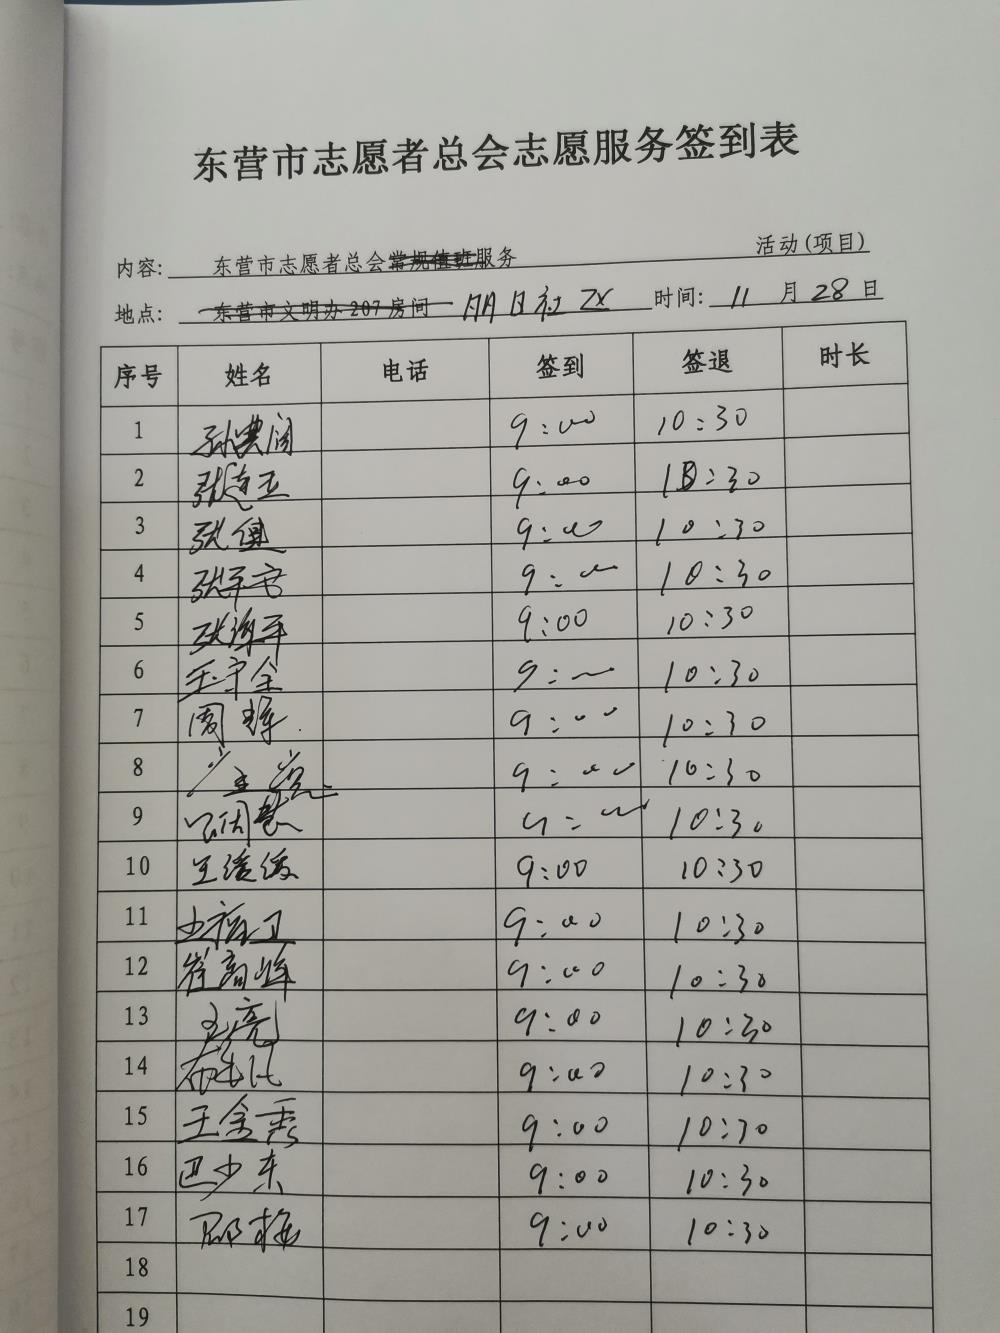 东营市志愿者总会志愿服务签到表
内容: 东营市志愿者总会常规值班服务 活动(项目)
地点: 东营市文明办207房间 明日社区 时间: 11月28日
序号 姓名 电话 签到 签退 时长
1 9:00 10:30
2 9:00 10:30
3 张健 9:00 10:30
4 张平安 9:00 10:30
5 9:00 10:30
6 王守全 9:00 10:30
7 周 9:00 10:30
8 9:00 10:30
9 9:00 10:30
10 王媛媛 9:00 10:30
11 9:00 10:30
12 崔高峰 9:00 10:30
13 王亮 9:00 10:30
14 9:00 10:30
15 王金秀 9:00 10:30
16 巴少东 9:00 10:30
17 邵梅 9:00 10:30
18
19